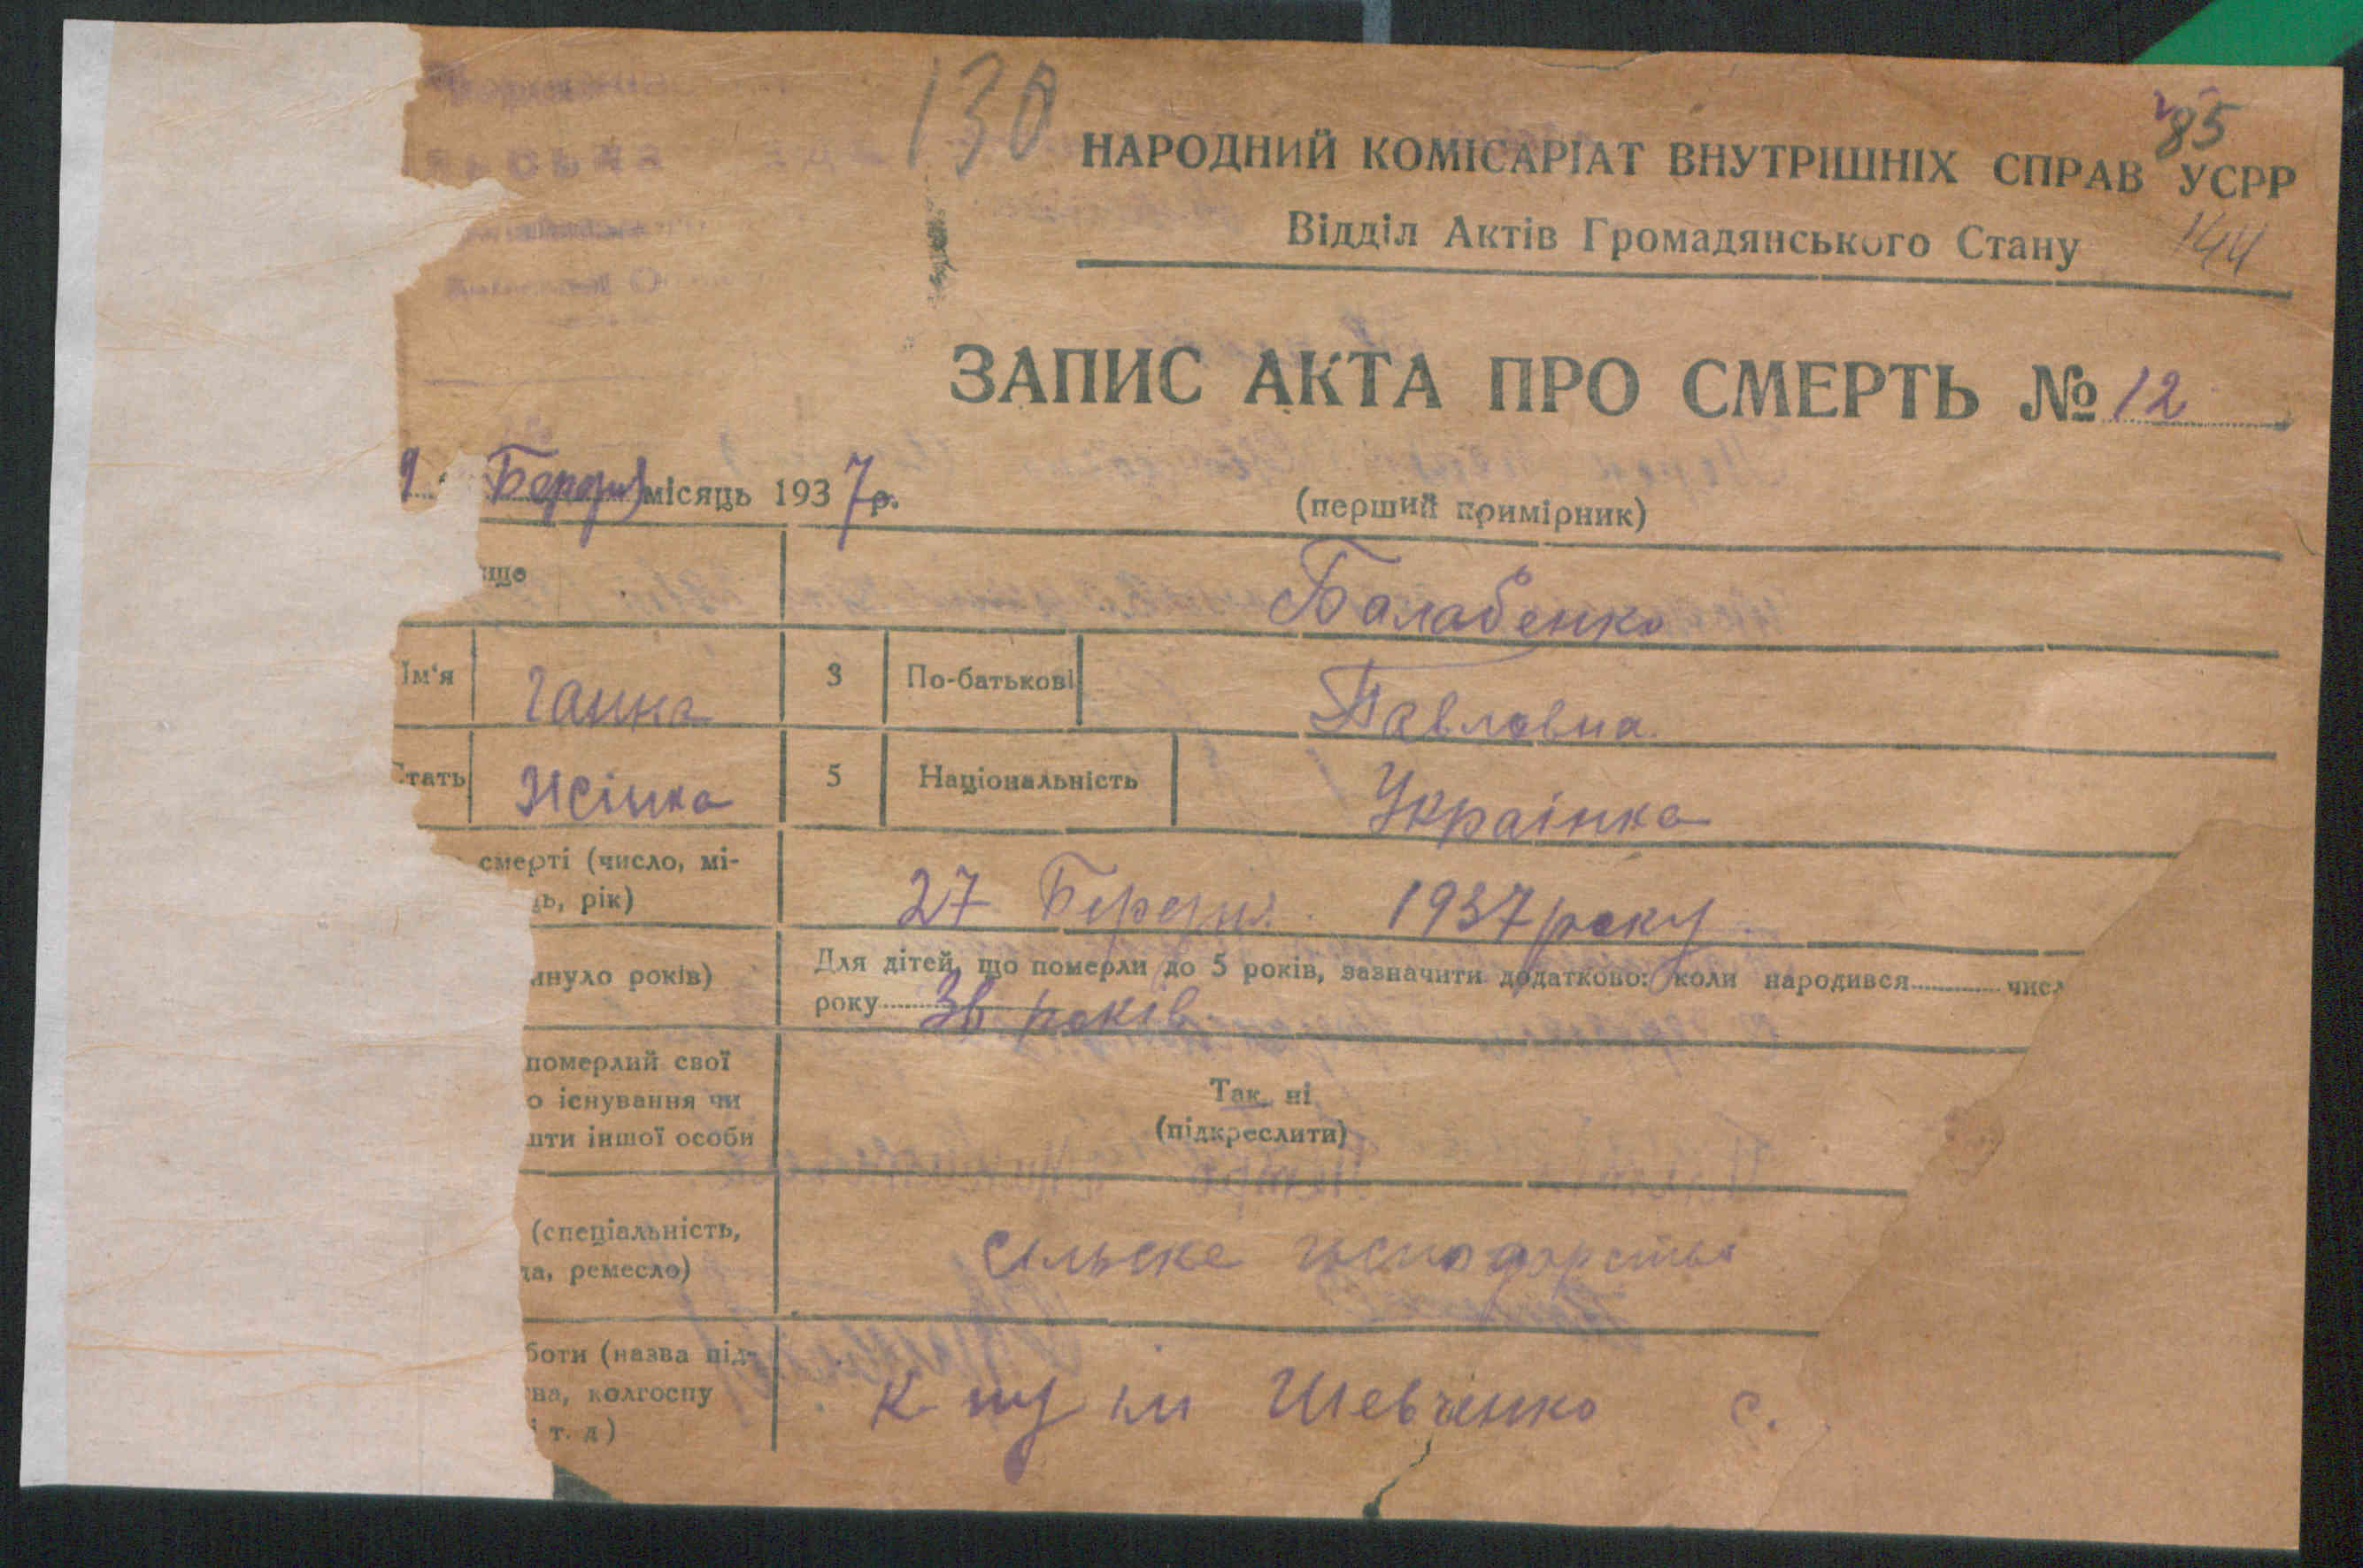 130
85
НАРОДНИЙ КОМІСАРІАТ ВНУТРІШНІХ СПРАВ УСРР
Відділ Актів Громадянського Стану
144
ЗАПИС АКТА ПРО СМЕРТЬ № 12
9 Березня місяць 1937 р.
(перший примірник)
ище Балабенко
Ім'я Ганна 3 По-батькові Павловна
Стать Жінка 5 Національність Українка
смерті (число, мі-
ць, рік) 27 Березня 1937 року
инуло років) Для дітей, що померли до 5 років, зазначити додатково: коли народився числ
року 36 років
померлий свої
о існування чи
шти іншої особи
Так, ні
(підкреслити)
(спеціальність,
да, ремесло) сільске господарство
боти (назва під-
тва, колгоспу
і т. д) К-пу ім Шевченко с.